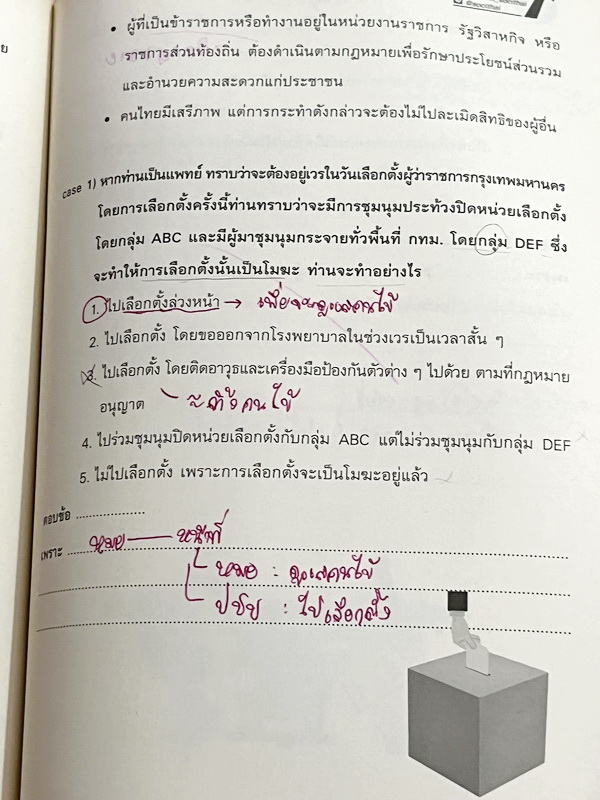 @isocothai
• ผู้ที่เป็นข้าราชการหรือทำงานอยู่ในหน่วยงานราชการ รัฐวิสาหกิจ หรือ
ราชการส่วนท้องถิ่น ต้องดำเนินตามกฎหมายเพื่อรักษาประโยชน์ส่วนรวม
และอำนวยความสะดวกแก่ประชาชน
• คนไทยมีเสรีภาพ แต่การกระทำดังกล่าวจะต้องไม่ไปละเมิดสิทธิของผู้อื่น
case 1) หากท่านเป็นแพทย์ ทราบว่าจะต้องอยู่เวรในวันเลือกตั้งผู้ว่าราชการกรุงเทพมหานคร
โดยการเลือกตั้งครั้งนี้ท่านทราบว่าจะมีการชุมนุมประท้วงปิดหน่วยเลือกตั้ง
โดยกลุ่ม ABC และมีผู้มาชุมนุมกระจายทั่วพื้นที่ กทม. โดยกลุ่ม DEF ซึ่ง
จะทำให้การเลือกตั้งนั้นเป็นโมฆะ ท่านจะทำอย่างไร
1. ไปเลือกตั้งล่วงหน้า → เพื่อจะดูแลคนไข้
2. ไปเลือกตั้ง โดยขอออกจากโรงพยาบาลในช่วงเวรเป็นเวลาสั้น ๆ
3. ไปเลือกตั้ง โดยติดอาวุธและเครื่องมือป้องกันตัวต่าง ๆ ไปด้วย ตามที่กฎหมาย
อนุญาต ละทิ้งคนไข้
4. ไปร่วมชุมนุมปิดหน่วยเลือกตั้งกับกลุ่ม ABC แต่ไม่ร่วมชุมนุมกับกลุ่ม DEF
5. ไม่ไปเลือกตั้ง เพราะการเลือกตั้งจะเป็นโมฆะอยู่แล้ว
ตอบข้อ ..................
เพราะ หมอ — หน้าที่
หมอ : ดูแลคนไข้
ปชช : ไปเลือกตั้ง